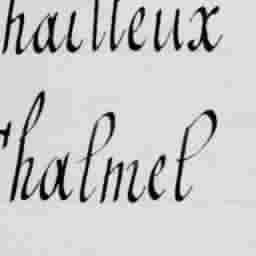 hailleux
Chalmel